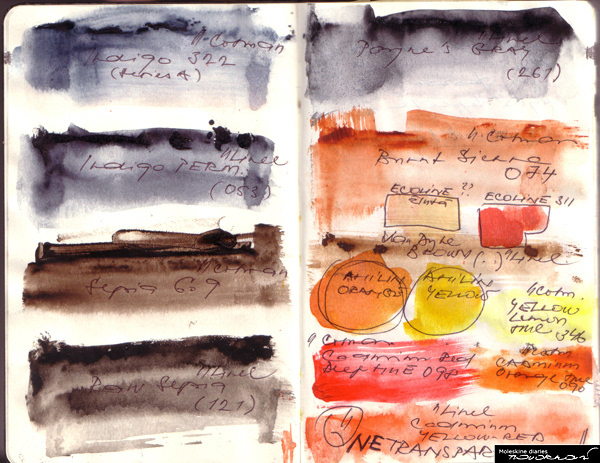 "Cotman
Indigo 322
(series A)
"Linel
Indigo PERM.
(053)
"Cotman
Sepia 609
"Linel
Raw Sepia
(121)
"Linel
Payne's GRAY
(261)
"Cotman
Burnt Sienna
074
ECOLINE ??
ECOLINE 311
Van Dyke
BROWN (..) "Linel
ANILIN
ORANGE
ANILIN
YELLOW
"Cotm.
YELLOW
Lemon
Hue 346
"Cotman
Cadmium Red
Deep HUE 098
"Cotm
CADMIUM
Orange Hue
090
"Linel
Cadmium
YELLOW-RED
NETRANSPAR
Moleskine diaries